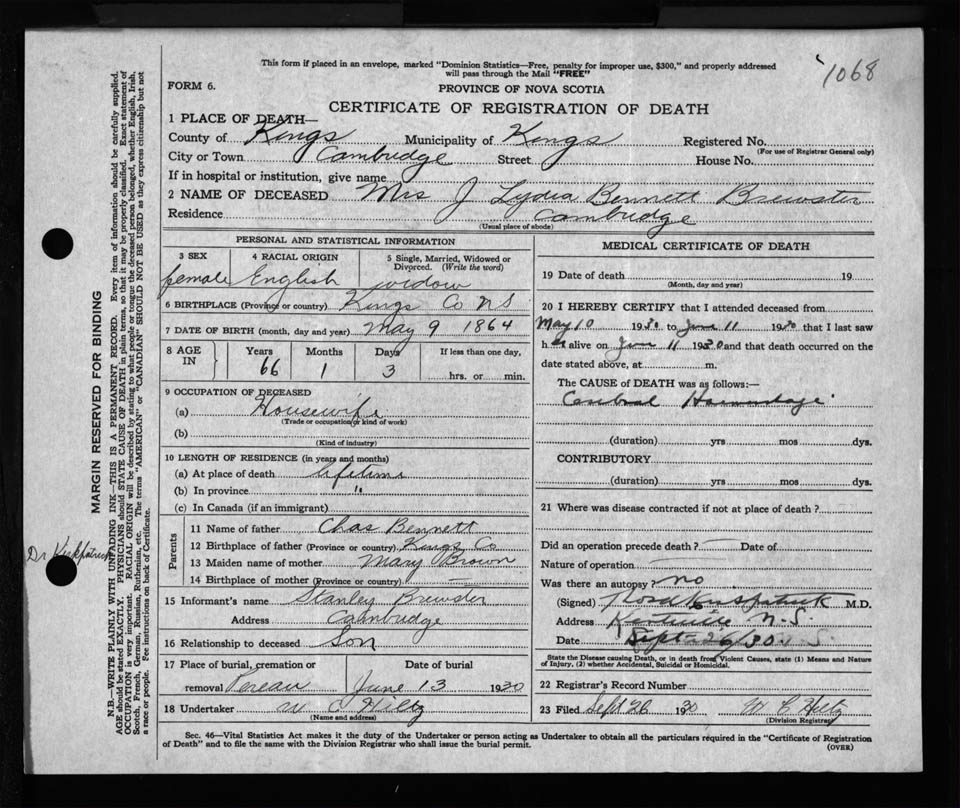 1068
This form if placed in an envelope, marked "Dominion Statistics—Free, penalty for improper use, $300," and properly addressed
will pass through the Mail "FREE"
FORM 6.
PROVINCE OF NOVA SCOTIA
CERTIFICATE OF REGISTRATION OF DEATH
1 PLACE OF DEATH—
County of Kings Municipality of Kings Registered No.
(For use of Registrar General only)
City or Town Cambridge Street House No.
If in hospital or institution, give name
2 NAME OF DECEASED Mrs J Lydia Bennett Brewster
Residence Cambridge
(Usual place of abode)
PERSONAL AND STATISTICAL INFORMATION
3 SEX 4 RACIAL ORIGIN 5 Single, Married, Widowed or
Divorced. (Write the word)
female English widow
6 BIRTHPLACE (Province or country) Kings Co NS
7 DATE OF BIRTH (month, day and year) May 9 1864
8 AGE IN Years Months Days If less than one day,
66 1 3 hrs. or min.
9 OCCUPATION OF DECEASED
(a) Housewife
(Trade or occupation or kind of work)
(b)
(Kind of industry)
10 LENGTH OF RESIDENCE (in years and months)
(a) At place of death lifetime
(b) In province "
(c) In Canada (if an immigrant)
Parents
11 Name of father Chas Bennett
12 Birthplace of father (Province or country) Kings Co
13 Maiden name of mother Mary Brown
14 Birthplace of mother (Province or country) —
15 Informant's name Stanley Brewster
Address Cambridge
16 Relationship to deceased Son
17 Place of burial, cremation or Date of burial
removal Pereau June 13 1930
18 Undertaker W C Hiltz
(Name and address)
MEDICAL CERTIFICATE OF DEATH
19 Date of death 19
(Month, day and year)
20 I HEREBY CERTIFY that I attended deceased from
May 10 1930 to June 11 1930 that I last saw
her alive on June 11 1930 and that death occurred on the
date stated above, at m.
The CAUSE OF DEATH was as follows:—
Cerebral Haemorrhage
(duration) yrs mos dys.
CONTRIBUTORY
(duration) yrs mos dys.
21 Where was disease contracted if not at place of death?
Did an operation precede death? — Date of
Nature of operation —
Was there an autopsy? no
(Signed) Kirkpatrick M.D.
Address Kentville N.S.
Date Sept 26/30
State the Disease causing Death, or in death from Violent Causes, state (1) Means and Nature
of Injury, (2) whether Accidental, Suicidal or Homicidal.
22 Registrar's Record Number
23 Filed Sept 26 1930 W C Hiltz
(Division Registrar)
Sec. 46—Vital Statistics Act makes it the duty of the Undertaker or person acting as Undertaker to obtain all the particulars required in the "Certificate of Registration
of Death" and to file the same with the Division Registrar who shall issue the burial permit.
(OVER)
MARGIN RESERVED FOR BINDING
N.B.—WRITE PLAINLY WITH UNFADING INK—THIS IS A PERMANENT RECORD. Every item of information should be carefully supplied.
AGE should be stated EXACTLY. PHYSICIANS should STATE CAUSE OF DEATH in plain terms, so that it may be properly classified. Exact statement of
OCCUPATION is very important. RACIAL ORIGIN will be described by stating to what people or tongue the deceased person belonged, whether English, Irish,
Scotch, French, German, Russian, Ruthenian, etc. The terms "AMERICAN" or "CANADIAN" SHOULD NOT BE USED as they express citizenship but not
a race or people. See instructions on back of Certificate.
Dr Kirkpatrick